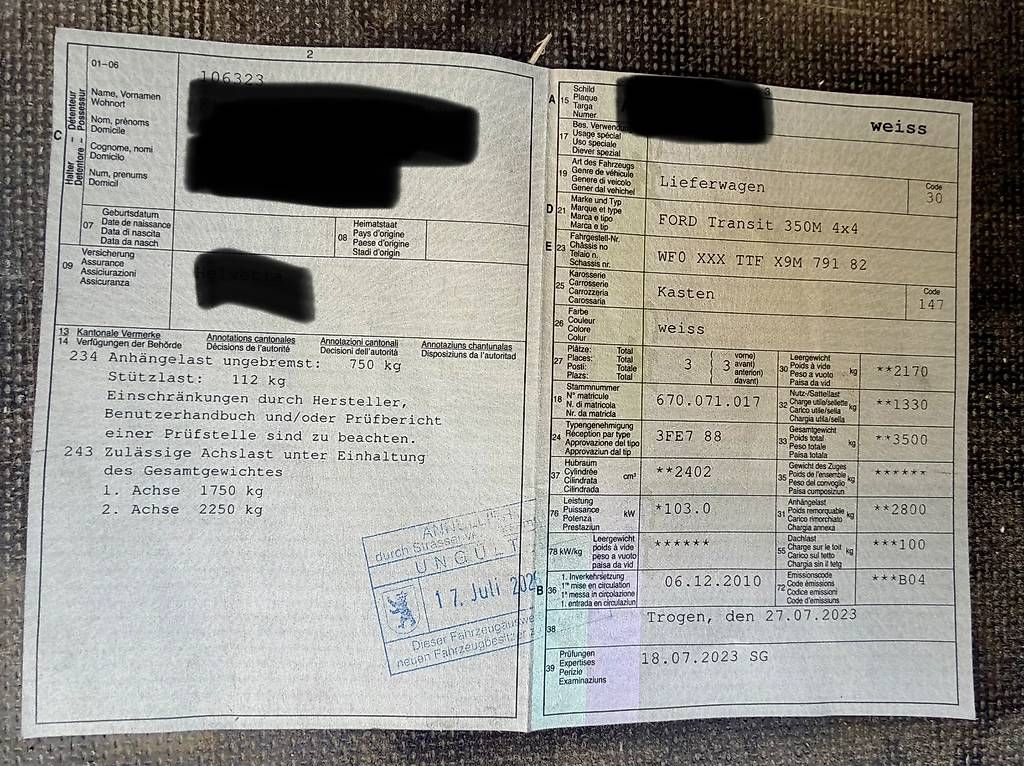 2
01-06
106323
C
Halter – Détenteur
Detentore – Possessur
Name, Vornamen
Wohnort
Nom, prénoms
Domicile
Cognome, nomi
Domicilo
Num, prenums
Domicil
07
Geburtsdatum
Date de naissance
Data di nascita
Data da nasch
08
Heimatstaat
Pays d'origine
Paese d'origine
Stadi d'origin
09
Versicherung
Assurance
Assiciurazioni
Assicuranza
13 Kantonale Vermerke
14 Verfügungen der Behörde
Annotations cantonales
Décisions de l'autorité
Annotazioni cantonali
Decisioni dell'autorità
Annotaziuns chantunalas
Disposiziuns da l'autoritad
234 Anhängelast ungebremst: 750 kg
Stützlast: 112 kg
Einschränkungen durch Hersteller,
Benutzerhandbuch und/oder Prüfbericht
einer Prüfstelle sind zu beachten.
243 Zulässige Achslast unter Einhaltung
des Gesamtgewichtes
1. Achse 1750 kg
2. Achse 2250 kg
durch Strassen
UNGÜLT
17. Juli 202
Dieser Fahrzeugauswe
neuen Fahrzeugbesitzer
3
A 15
Schild
Plaque
Targa
Numer
weiss
17
Bes.
Usage spécial
Uso speciale
Diever spezial
19
Art des Fahrzeugs
Genre de véhicule
Genere di veicolo
Gener dal vehichel
Lieferwagen
Code
30
D 21
Marke und Typ
Marque et type
Marca e tipo
Marca e tip
FORD Transit 350M 4x4
E 23
Fahrgestell-Nr.
Châssis no
Telaio n.
Schassis nr.
WF0 XXX TTF X9M 791 82
25
Karosserie
Carrosserie
Carrozzeria
Carossaria
Kasten
Code
147
26
Farbe
Couleur
Colore
Colur
weiss
27
Plätze: Total
Places: Total
Posti: Totale
Plazs: Total
3
3
vorne)
avant)
anteriori)
davant)
30
Leergewicht
Poids à vide
Peso a vuoto
Paisa da vid
kg
**2170
18
Stammnummer
N° matricule
N. di matricola
Nr. da matricla
670.071.017
32
Nutz-/Sattellast
Charge utile/sellette
Carico utile/sella
Chargia utila/sella
kg
**1330
24
Typengenehmigung
Réception par type
Approvazione del tipo
Approvaziun dal tip
3FE7 88
33
Gesamtgewicht
Poids total
Peso totale
Paisa totala
kg
**3500
37
Hubraum
Cylindrée
Cilindrata
Cilindrada
cm³
**2402
35
Gewicht des Zuges
Poids de l'ensemble
Peso del convoglio
Paisa cumposiziun
kg
******
76
Leistung
Puissance
Potenza
Prestaziun
kW
*103.0
31
Anhängelast
Poids remorquable
Carico rimorchiato
Chargia annexa
kg
**2800
78 kW/kg
Leergewicht
poids à vide
peso a vuoto
paisa da vid
******
55
Dachlast
Charge sur le toit
Carico sul tetto
Chargia sin il tetg
kg
***100
B 36
1. Inverkehrsetzung
1re mise en circulation
1a messa in circolazione
1. entrada en circulaziun
06.12.2010
72
Emissionscode
Code émissions
Codice emissioni
Code d'emissiuns
***B04
38
Trogen, den 27.07.2023
39
Prüfungen
Expertises
Perizie
Examinaziuns
18.07.2023 SG